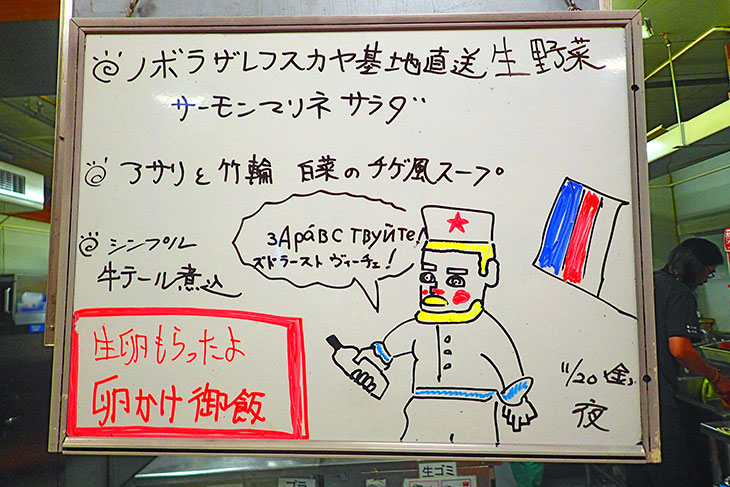 ノボラザレフスカヤ基地直送 生野菜
サーモンマリネ サラダ
アサリと竹輪 白菜のチゲ風スープ
シンプル
牛テール煮込
生卵もらったよ
卵かけ御飯
ЗДРáВСТВУЙТЕ!
ズドラースト ヴィーチェ!
11/20(金)
夜
生ゴミ
プラ